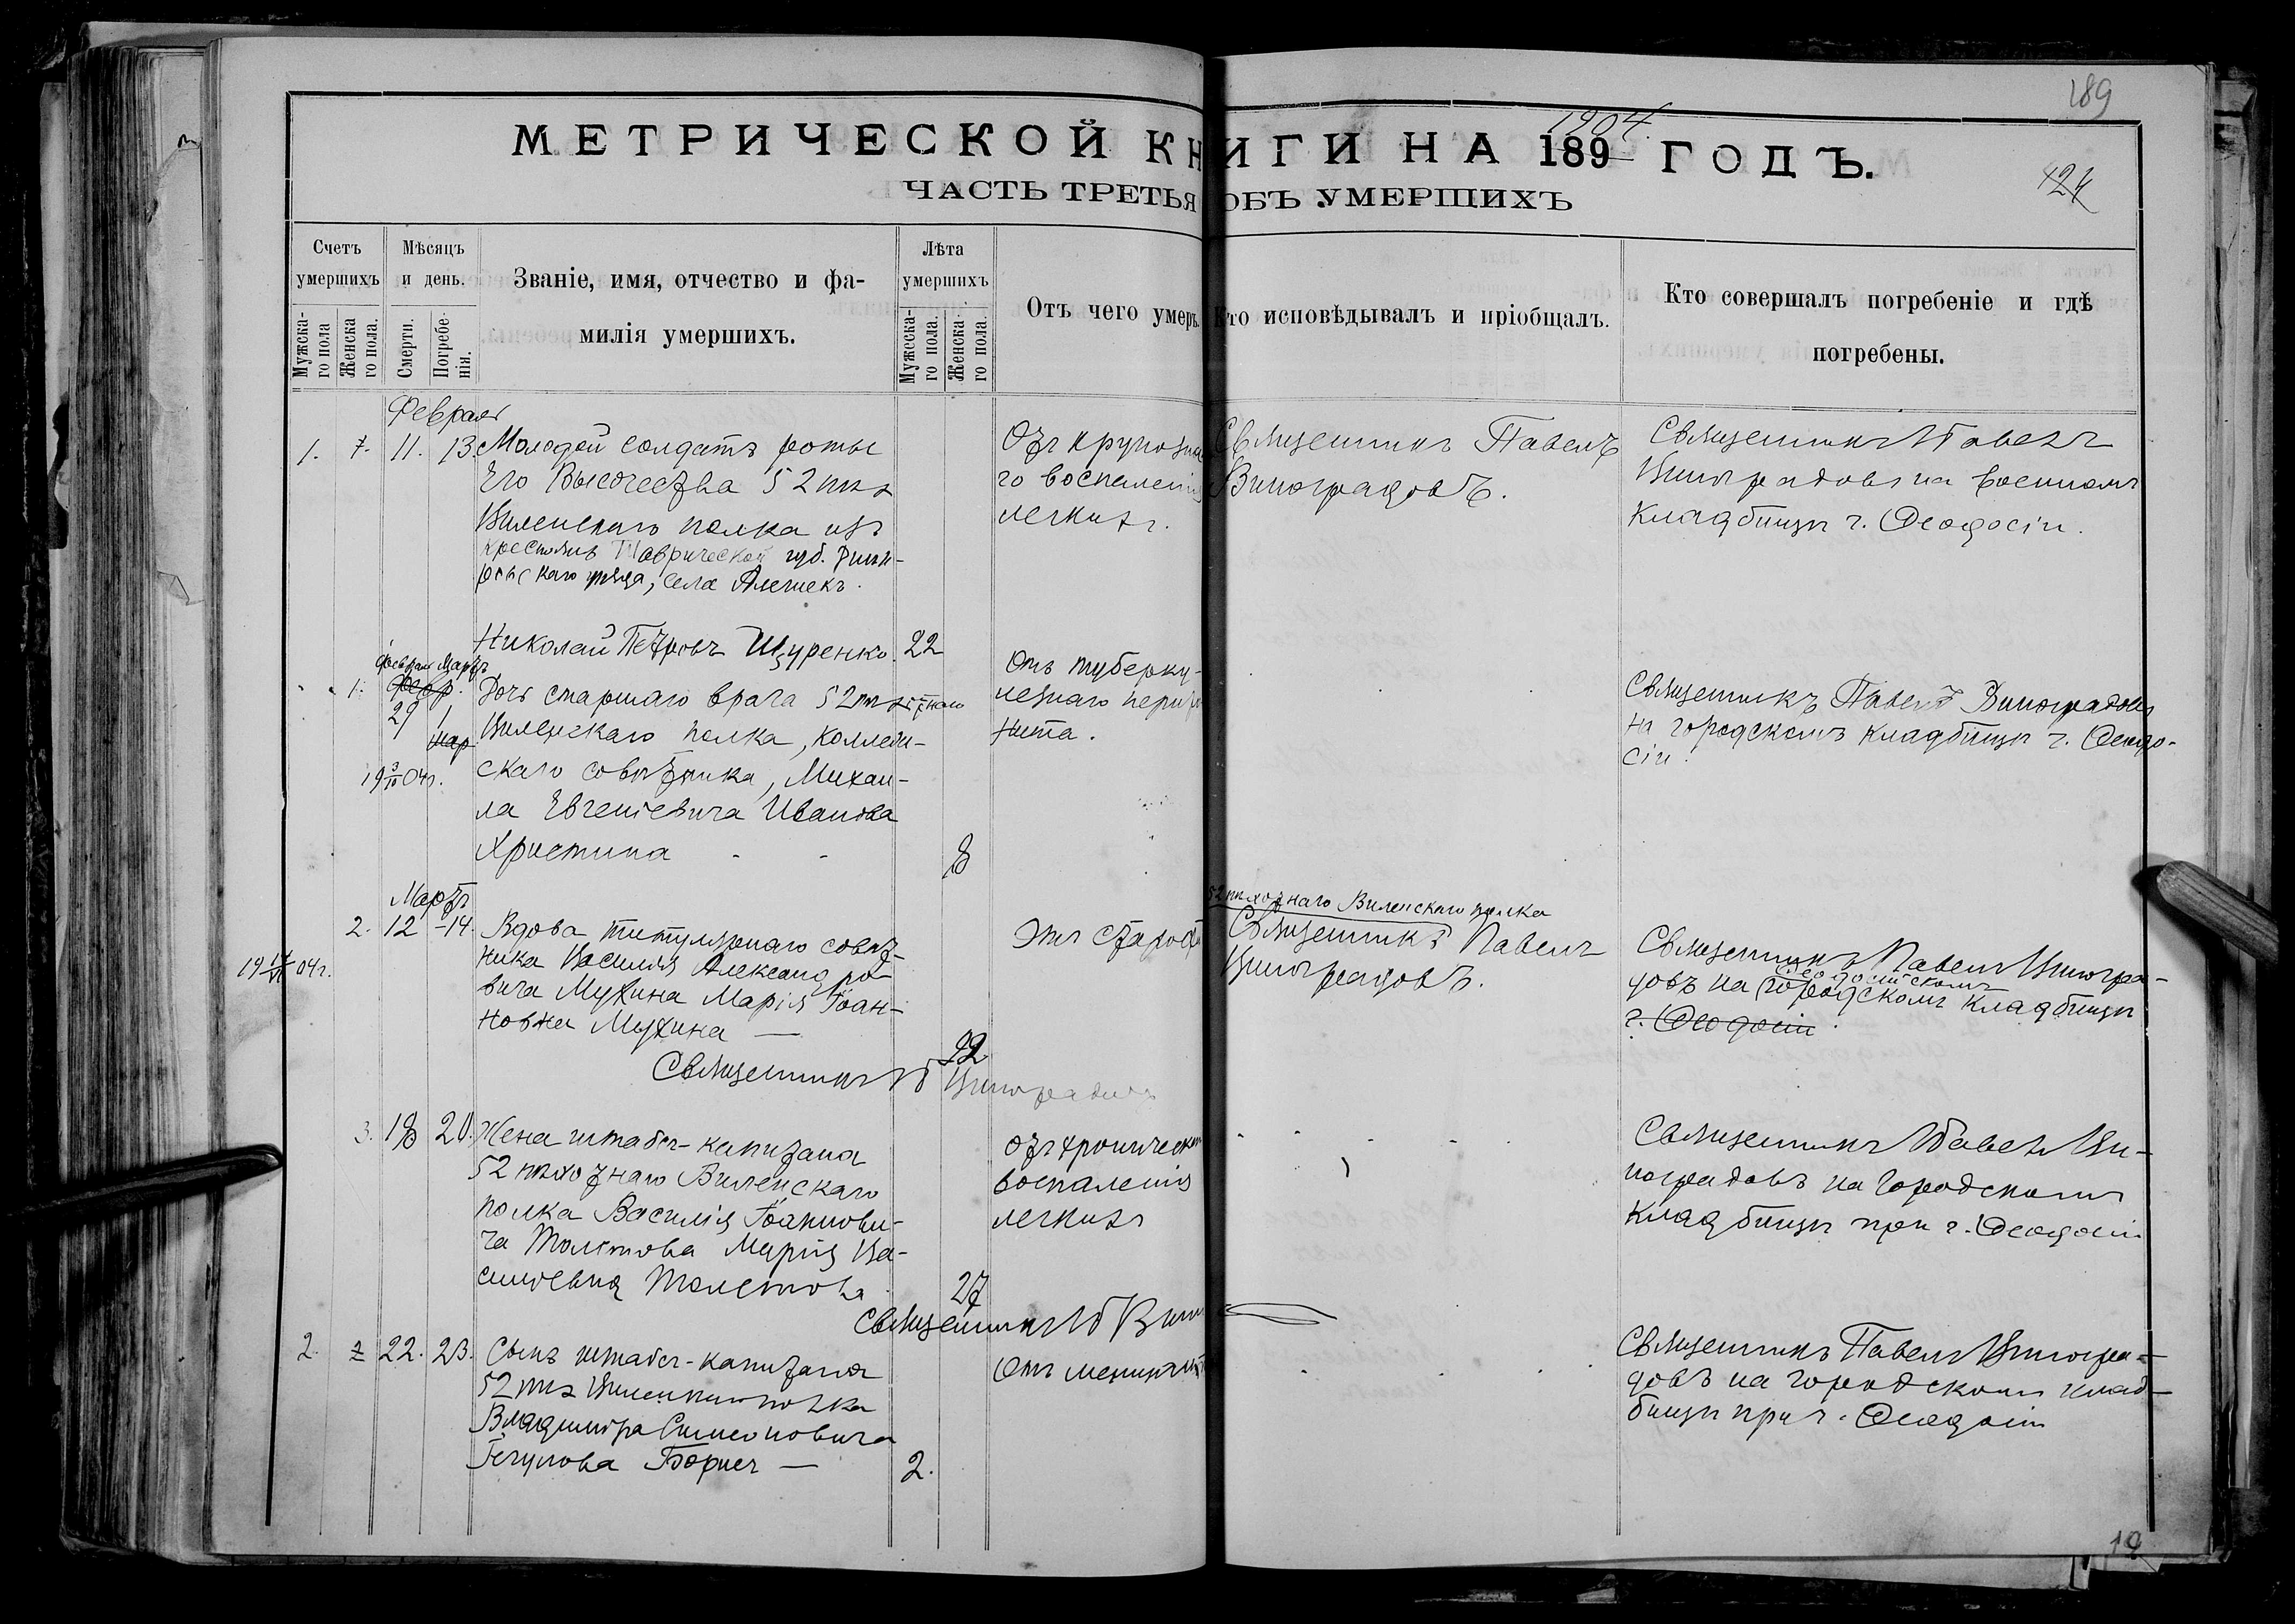 189
1904.
МЕТРИЧЕСКОЙ КНИГИ НА 189 ГОДЪ.
424
ЧАСТЬ ТРЕТЬЯ ОБЪ УМЕРШИХЪ
Счетъ умершихъ
Мужска-го пола
Женска го пола.
Мѣсяцъ и день.
Смерти.
Погребе-нія.
Званіе, имя, отчество и фа-
милія умершихъ.
Лѣта умершихъ
Мужеска-го пола.
Женска го пола.
Отъ чего умеръ.
Кто исповѣдывалъ и пріобщалъ.
Кто совершалъ погребеніе и гдѣ
погребены.
Февраль
1. 11. 13. Молодой солдатъ роты
Его Высочества 52 пѣх
Виленскаго полка изъ
крестьянъ Таврической губ. Днѣп-
ровскаго уѣзда, села Алешекъ.
Николай Петровъ Щуренко. 22
Отъ крупозна
го воспаленія
легкихъ.
Священникъ Павелъ
Виноградовъ.
Священникъ Павелъ
Виноградовъ на военномъ
кладбищѣ г. Ѳеодосіи.
Февраль Мартъ
1. Февр. 29 1 мар
Дочь старшаго врача 52 пѣхотнаго
Виленскаго полка, коллеж-
скаго совѣтника, Михаи-
ла Евгеніевича Иванова
Христина - - 8
Отъ туберку-
лезнаго перито
нита.
Священникъ Павелъ Виноградовъ
на городскомъ кладбищѣ г. Ѳеодо-
сіи.
Мартъ
2. 12 - 14. Вдова титулярнаго совѣт-
ника Василія Александро-
вича Мухина Марія Іоан-
новна Мухина — 92
Отъ старости
52 пѣхотнаго Виленскаго полка
Священникъ Павелъ
Виноградовъ.
Священникъ Павелъ Виногра-
Ѳеодосійскомъ
довъ на городскомъ кладбищѣ
г. Ѳеодосіи.
Священникъ П Виноградовъ
3. 18 20. Жена штабсъ-капитана
52 пѣхотнаго Виленскаго
полка Василія Іоаннови-
ча Толстова Марія Ва-
сильевна Толстова 27
Отъ хроническ
воспаленія
легкихъ
Священникъ Павелъ Ви-
ноградовъ на городскомъ
кладбищѣ при г. Ѳеодосіи
Священникъ П Вино
2. 22. 23. Сынъ штабсъ-капитана
52 пѣх Виленскаго полка
Владиміра Симеоновича
Борисъ — 2.
Отъ менингита
Священникъ Павелъ Виногра-
довъ на городскомъ клад-
бищѣ при г. Ѳеодосіи